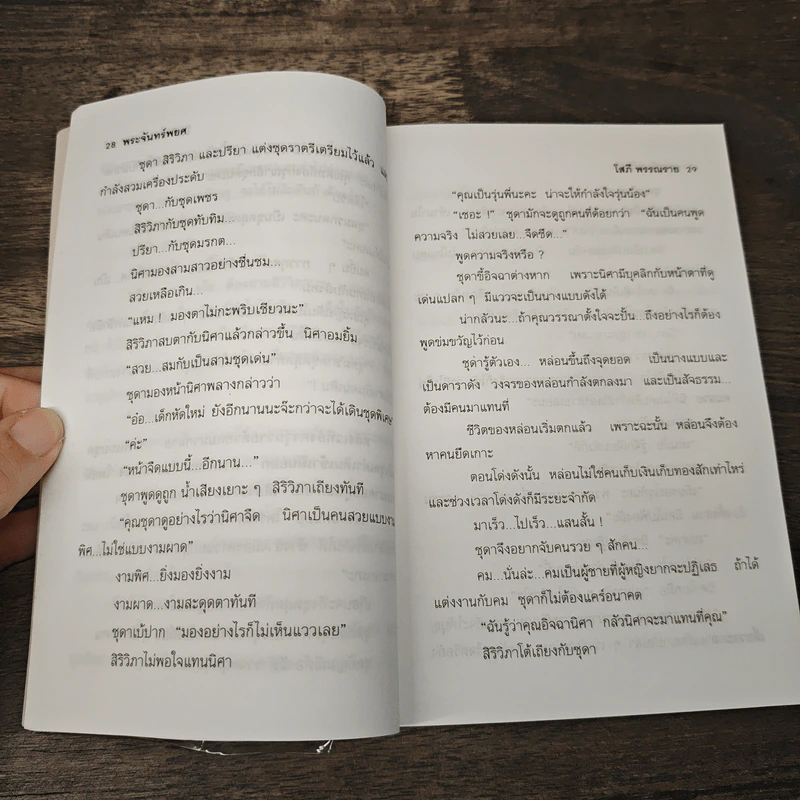 28 พระจันทร์พยศ
ชุดา สิริวิภา และปรียา แต่งชุดราตรีเตรียมไว้แล้ว
กำลังสวมเครื่องประดับ
ชุดา...กับชุดเพชร
สิริวิภากับชุดทับทิม...
ปรียา...กับชุดมรกต...
นิศามองสามสาวอย่างชื่นชม...
สวยเหลือเกิน...
“แหม ! มองตาไม่กะพริบเชียวนะ”
สิริวิภาสบตากับนิศาแล้วกล่าวขึ้น นิศาอมยิ้ม
“สวย...สมกับเป็นสามชุดเด่น”
ชุดามองหน้านิศาพลางกล่าวว่า
“อ๋อ...เด็กหัดใหม่ ยังอีกนานนะจ๊ะกว่าจะได้เดินชุดพิเศษ
“ค่ะ”
“หน้าจืดแบบนี้...อีกนาน...”
ชุดาพูดดูถูก น้ำเสียงเยาะ ๆ สิริวิภาเถียงทันที
“คุณชุดาดูอย่างไรว่านิศาจืด นิศาเป็นคนสวยแบบงาม
พิศ...ไม่ใช่แบบงามผาด”
งามพิศ...ยิ่งมองยิ่งงาม
งามผาด...งามสะดุดตาทันที
ชุดาเบ้ปาก “มองอย่างไรก็ไม่เห็นแววเลย”
สิริวิภาไม่พอใจแทนนิศา
โสภี พรรณราย 29
“คุณเป็นรุ่นพี่นะคะ น่าจะให้กำลังใจรุ่นน้อง”
“เชอะ !” ชุดามักจะดูถูกคนที่ด้อยกว่า “ฉันเป็นคนพูด
ความจริง ไม่สวยเลย...จืดชืด...”
พูดความจริงหรือ ?
ชุดาขี้อิจฉาต่างหาก เพราะนิศามีบุคลิกกับหน้าตาที่ดู
เด่นแปลก ๆ มีแววจะเป็นนางแบบดังได้
น่ากลัวนะ...ถ้าคุณวรรณาตั้งใจจะปั้น...ถึงอย่างไรก็ต้อง
พูดข่มขวัญไว้ก่อน
ชุดารู้ตัวเอง... หล่อนขึ้นถึงจุดยอด เป็นนางแบบและ
เป็นดาราดัง วงจรของหล่อนกำลังตกลงมา และเป็นสัจธรรม...
ต้องมีคนมาแทนที่
ชีวิตของหล่อนเริ่มตกแล้ว เพราะฉะนั้น หล่อนจึงต้อง
หาคนยึดเกาะ
ตอนโด่งดังนั้น หล่อนไม่ใช่คนเก็บเงินเก็บทองสักเท่าไหร่
และช่วงเวลาโด่งดังก็มีระยะจำกัด
มาเร็ว...ไปเร็ว...แสนสั้น !
ชุดาจึงอยากจับคนรวย ๆ สักคน...
คม...นั่นล่ะ...คมเป็นผู้ชายที่ผู้หญิงยากจะปฏิเสธ ถ้าได้
แต่งงานกับคม ชุดาก็ไม่ต้องแคร์อนาคต
“ฉันรู้ว่าคุณอิจฉานิศา กลัวนิศาจะมาแทนที่คุณ”
สิริวิภาโต้เถียงกับชุดา